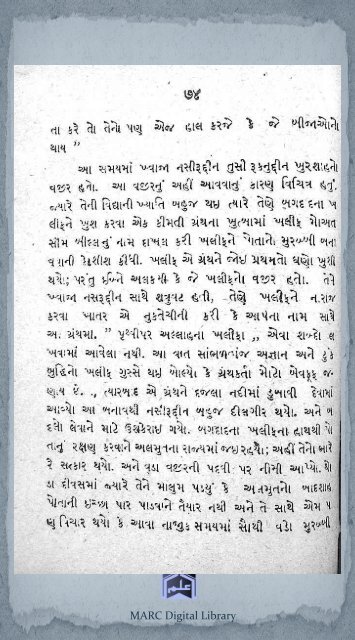 ૭૪
તા કરે તો તેનો પણ એજ હાલ કરજે કે જે બીજાઓનો
થાય ”
આ સમયમાં ખ્વાજા નસીરૂદ્દીન તુસી રૂકનુદ્દીન ખુરશાહનો
વજીર હતો. આ વજીરનું અહીં આવવાનું કારણ વિચિત્ર હતું.
જ્યારે તેની વિદ્યાની ખ્યાતિ બહુજ થઇ ત્યારે તેણે બગદાદના ખ
લીફને ખુશ કરવા એક કીમતી ગ્રંથના ખુત્બામાં ખલીફ મોઅત
સીમ બીલ્લાહનું નામ દાખલ કરી ખલીફને પોતાનો મુરબ્બી બના
વવાની કોશીશ કીધી. ખલીફ એ ગ્રંથને જોઇ પ્રથમતો ઘણો ખુશી
થયો; પરંતુ ઇબ્ને અલકમી કે જે ખલીફનો વજીર હતો. તેને
ખ્વાજા નસરૂદ્દીન સાથે શત્રુવટ હતી, તેણે ખલીફને નારાજ
કરવા ખાતર એ નુકતેચીની કરી કે આપના નામ સાથે
આ ગ્રંથમાં. ” પૃથ્વીપર અલ્લાહના ખલીફા ,, એવા શબ્દો લ
ખવામાં આવેલા નથી. આ વાત સાંભળતાંજ અજ્ઞાન અને ટુંક
બુદ્ધિનો ખલીફ ગુસ્સે થઇ બોલ્યો કે ગ્રંથકર્તા મોટો બેવકૂફ જ-
ણાય છે. ,, ત્યારબાદ એ ગ્રંથને દજલા નદીમાં ડુબાવી દેવામાં
આવ્યો આ બનાવથી નસીરૂદ્દીન બહુજ દીલગીર થયો. અને બ
દલો લેવાને માટે ઉશ્કેરાઇ ગયો. બગદાદના ખલીફના હાથથી પો
તાનું રક્ષણ કરવાને અલમુતના રાજ્યમાં જઇ રહ્યો; અહીં તેનો ભારે
રે સત્કાર થયો. અને વડા વજીરની પદવી પર નીમી આપ્યો. થો
ડા દીવસમાં જ્યારે તેને માલુમ પડયું કે અલમુતનો બાદશાહ
પોતાની ઇચ્છા પાર પાડવાને તૈયાર નથી અને તે સાથે એમ પ
ણ વિચાર થયો કે આવા નાજુક સમયમાં સૌથી વડો મુરબ્બી
MARC Digital Library